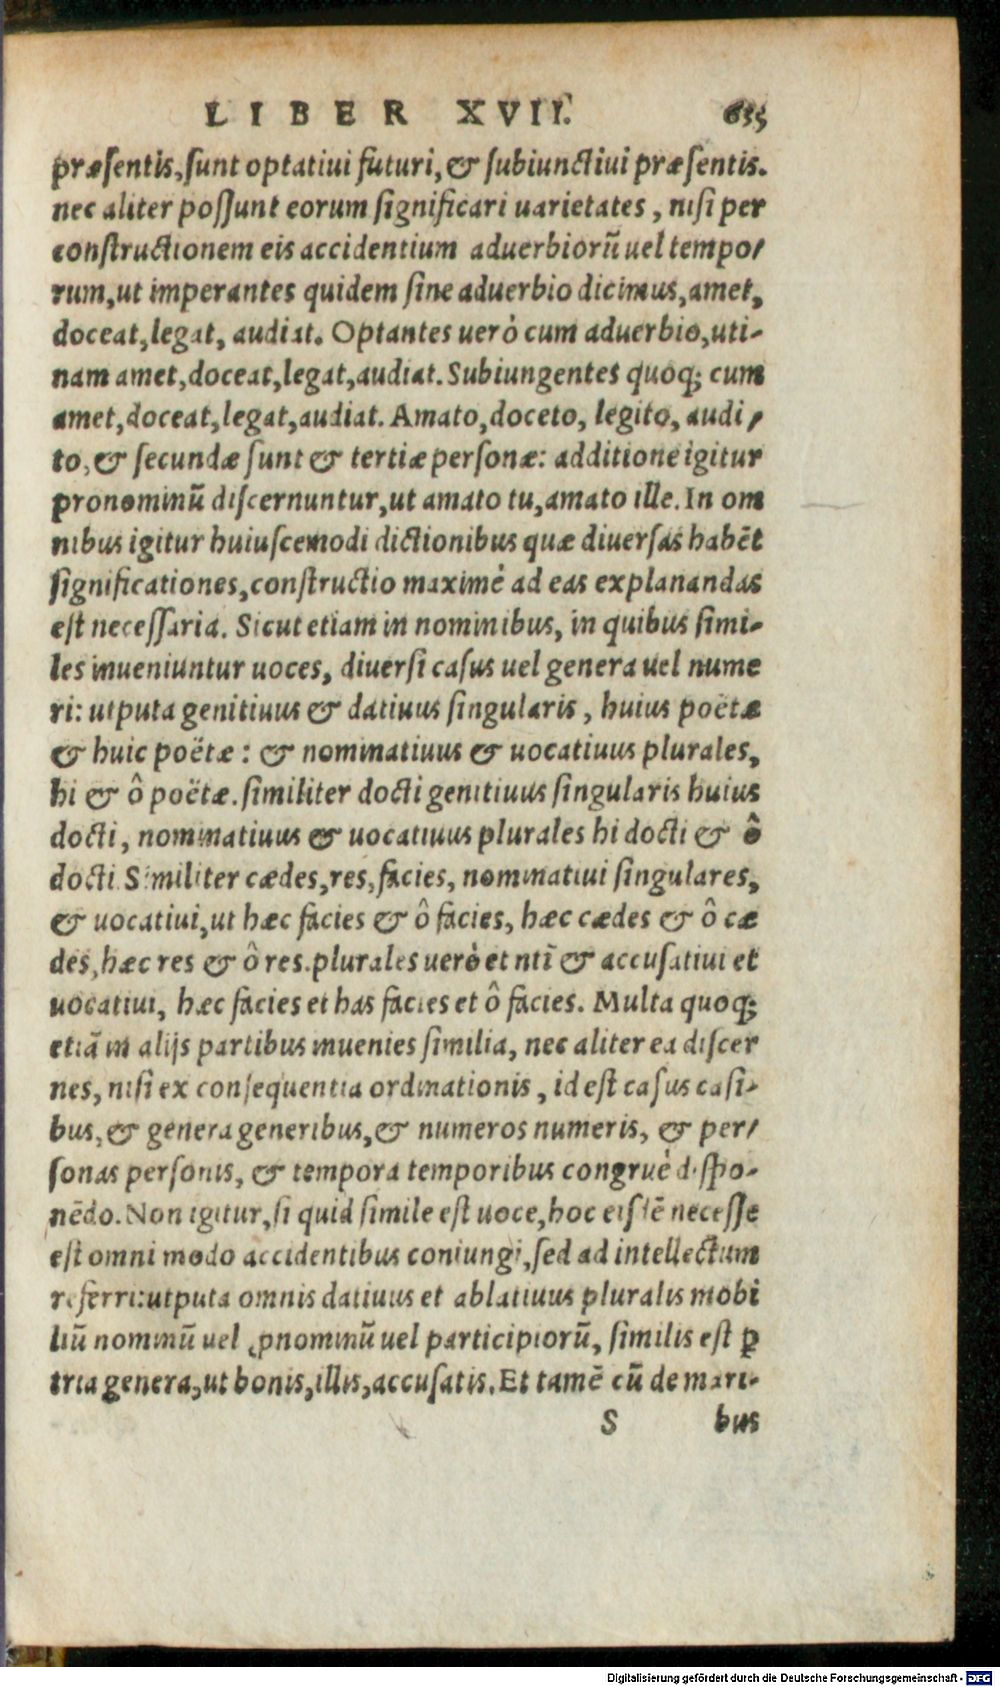 LIBER XVII. 635
præsentis, sunt optatiui futuri, & subiunctiui præsentis.
nec aliter possunt eorum significari uarietates, nisi per
constructionem eis accidentium aduerbiorũ uel tempo/
rum, ut imperantes quidem sine aduerbio dicimus, amet,
doceat, legat, audiat. Optantes uerò cum aduerbio, uti-
nam amet, doceat, legat, audiat. Subiungentes quoq; cum
amet, doceat, legat, audiat. Amato, doceto, legito, audi/
to, & secundæ sunt & tertiæ personæ: additione igitur
pronominũ discernuntur, ut amato tu, amato ille. In om
nibus igitur huiuscemodi dictionibus quæ diuersas habẽt
significationes, constructio maximè ad eas explanandas
est necessaria. Sicut etiam in nominibus, in quibus simi-
les inueniuntur uoces, diuersi casus uel genera uel nume
ri: utputa genitiuus & datiuus singularis, huius poëtæ
& huic poëtæ: & nominatiuus & uocatiuus plurales,
hi & ô poëtæ. similiter docti genitiuus singularis huius
docti, nominatiuus & uocatiuus plurales hi docti & ô
docti Similiter cædes, res, facies, nominatiui singulares,
& uocatiui, ut hæc facies & ô facies, hæc cædes & ô cæ
des, hæc res & ô res. plurales uerò et ntĩ & accusatiui et
uocatiui, hæc facies et has facies et ô facies. Multa quoq;
etiã in alijs partibus inuenies similia, nec aliter ea discer
nes, nisi ex consequentia ordinationis, id est casus casi-
bus, & genera generibus, & numeros numeris, & per/
sonas personis, & tempora temporibus congruè dispo-
nẽdo. Non igitur, si quid simile est uoce, hoc eisdẽ necesse
est omni modo accidentibus coniungi, sed ad intellectum
referri: utputa omnis datiuus et ablatiuus pluralis mobi
liũ nominũ uel ꝓnominũ uel participiorũ, similis est ꝑ
tria genera, ut bonis, illis, accusatis. Et tamẽ cũ de mari-
S bus
Digitalisierung gefördert durch die Deutsche Forschungsgemeinschaft - DFG